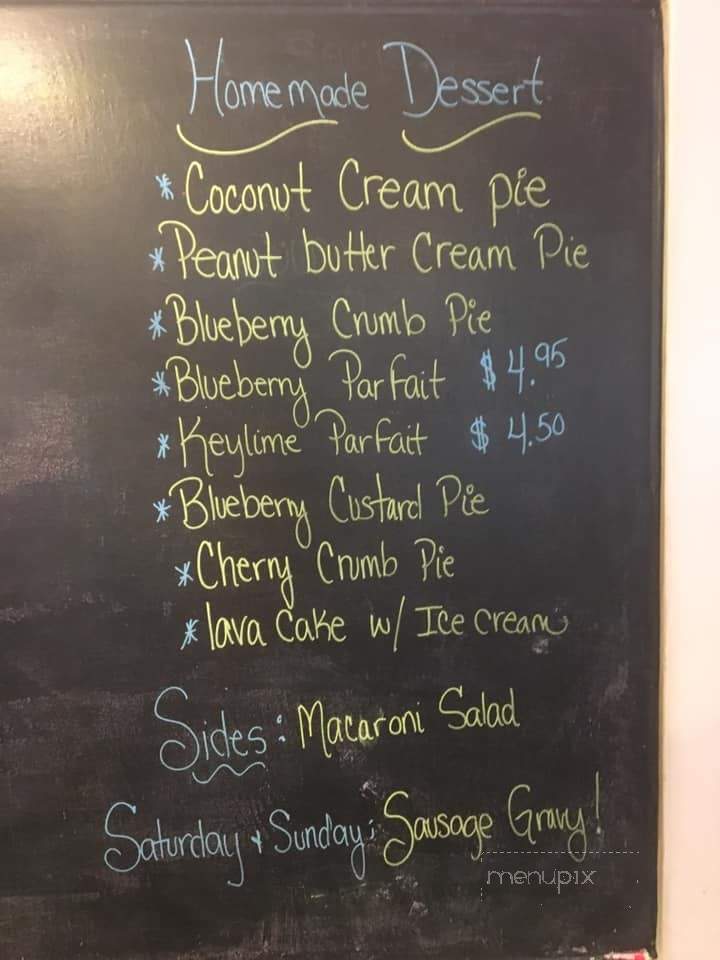 Homemade Dessert
* Coconut Cream pie
* Peanut butter Cream Pie
* Blueberry Crumb Pie
* Blueberry Parfait $4.95
* Keylime Parfait $4.50
* Blueberry Custard Pie
* Cherry Crumb Pie
* lava Cake w/ Ice cream
Sides: Macaroni Salad
Saturday + Sunday: Sausage Gravy!
menupix